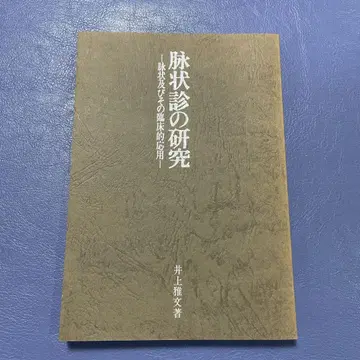 脉状診の研究
―脉状及びその臨床的応用―
井上雅文著